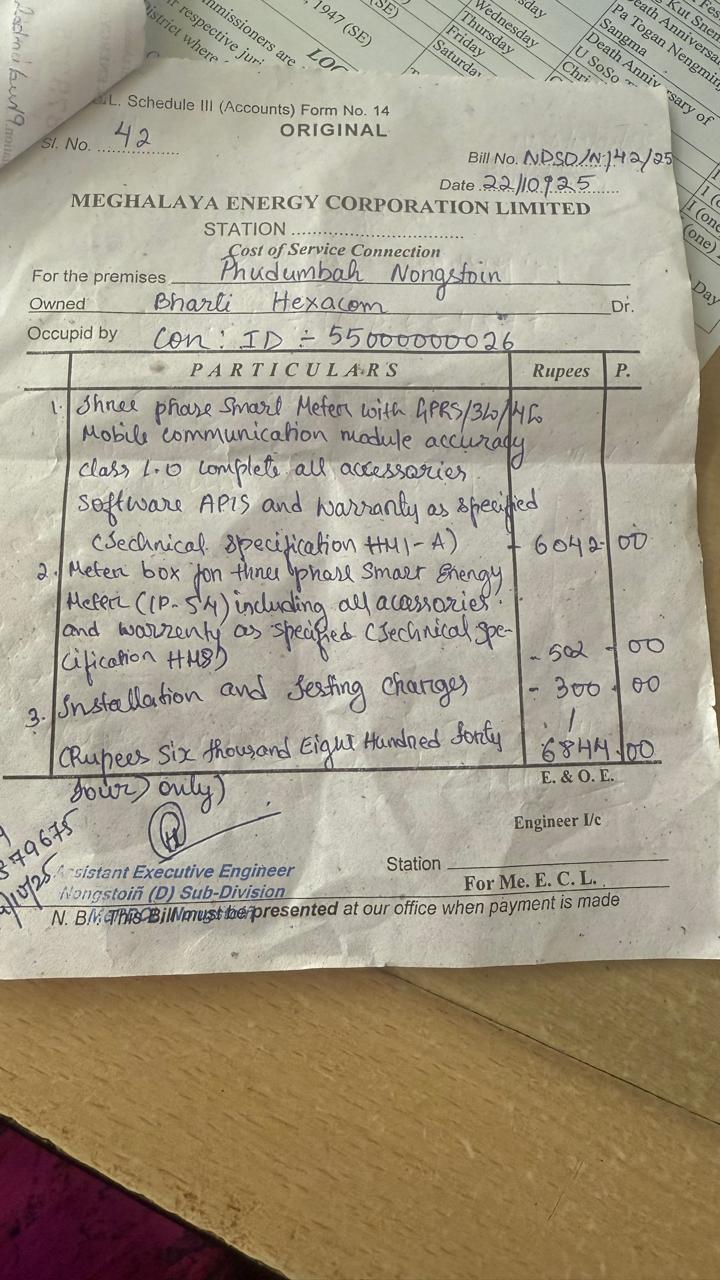 1947 (SE)
(SE)
mmissioners are
r respective juri
District where
LOC
Wednesday
Thursday
Friday
Saturday
Pa Togan Nengmin
Sangma
Death Anniversary of
U SoSo
(one)
Day
L. Schedule III (Accounts) Form No. 14
ORIGINAL
Sl. No. 42
Bill No. NDSD/N/42/25
Date 22/10/25
MEGHALAYA ENERGY CORPORATION LIMITED
STATION
Cost of Service Connection
For the premises Phudumbah Nongstoin
Owned Bharti Hexacom Dr.
Occupid by Con: ID ÷ 55000000026
PARTICULARS Rupees P.
1. Three phase Smart Meter with GPRS/3G/4G
Mobile communication module accuracy
class 1.0 complete all accessories
software APIS and warranty as specified
(Technical specification HM1-A) - 6042 00
2. Meter box for three phase Smart Energy
Meter (IP-54) including all acassories
and warrenty as specified (Technical spe-
cification HM8) - 502 - 00
3. Installation and Testing Charges - 300 . 00
(Rupees Six thousand Eight Hundred forty 6844.00
four) only)
E. & O. E.
Engineer I/c
379675
/10/25
Assistant Executive Engineer
Nongstoiñ (D) Sub-Division
Station
For Me. E. C. L.
N. B. This Bill must be presented at our office when payment is made